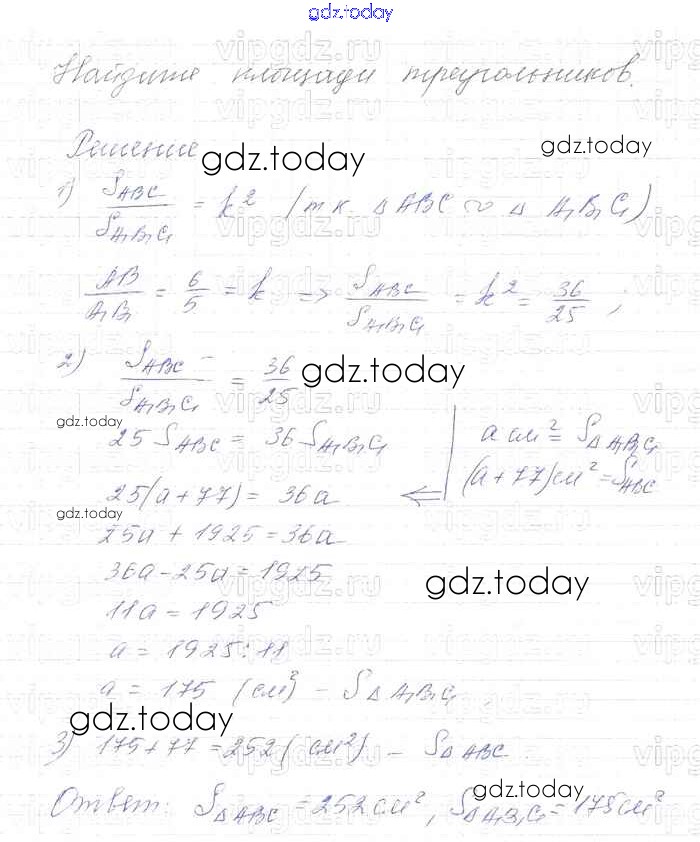 gdz.today
Найдите площади треугольников.
Решение
gdz.today
gdz.today
1) S_ABC / S_A₁B₁C₁ = k² /т.к. △ ABC ∽ △ A₁B₁C₁)
AB / A₁B₁ = 6/5 = k => S_ABC / S_A₁B₁C₁ = k² = 36/25 ;
2) S_ABC / S_A₁B₁C₁ = 36/25
gdz.today
gdz.today
25 S_ABC = 36 S_A₁B₁C₁
a см² = S_△A₁B₁C₁
(a + 77) см² = S_ABC
25(a + 77) = 36a ⇐
gdz.today
25a + 1925 = 36a
36a - 25a = 1925
gdz.today
11a = 1925
a = 1925 : 11
a = 175 (см²) - S_△A₁B₁C₁
gdz.today
3) 175 + 77 = 252 (см²) - S_△ABC
gdz.today
Ответ: S_△ABC = 252 см², S_△A₁B₁C₁ = 175 см²